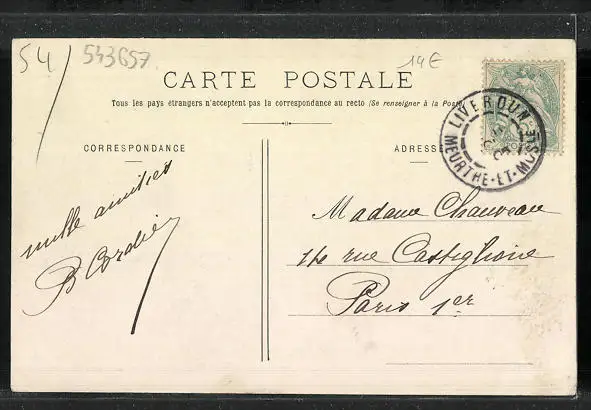 54/ 543657 19€
CARTE POSTALE
Tous les pays étrangers n'acceptent pas la correspondance au recto (Se renseigner à la Poste
CORRESPONDANCE ADRESSE
LIVERDUN
MEURTHE-ET-MOSELLE
mille amitiés
B Cordier
Madame Chauveau
116 rue Castiglione
Paris 1er